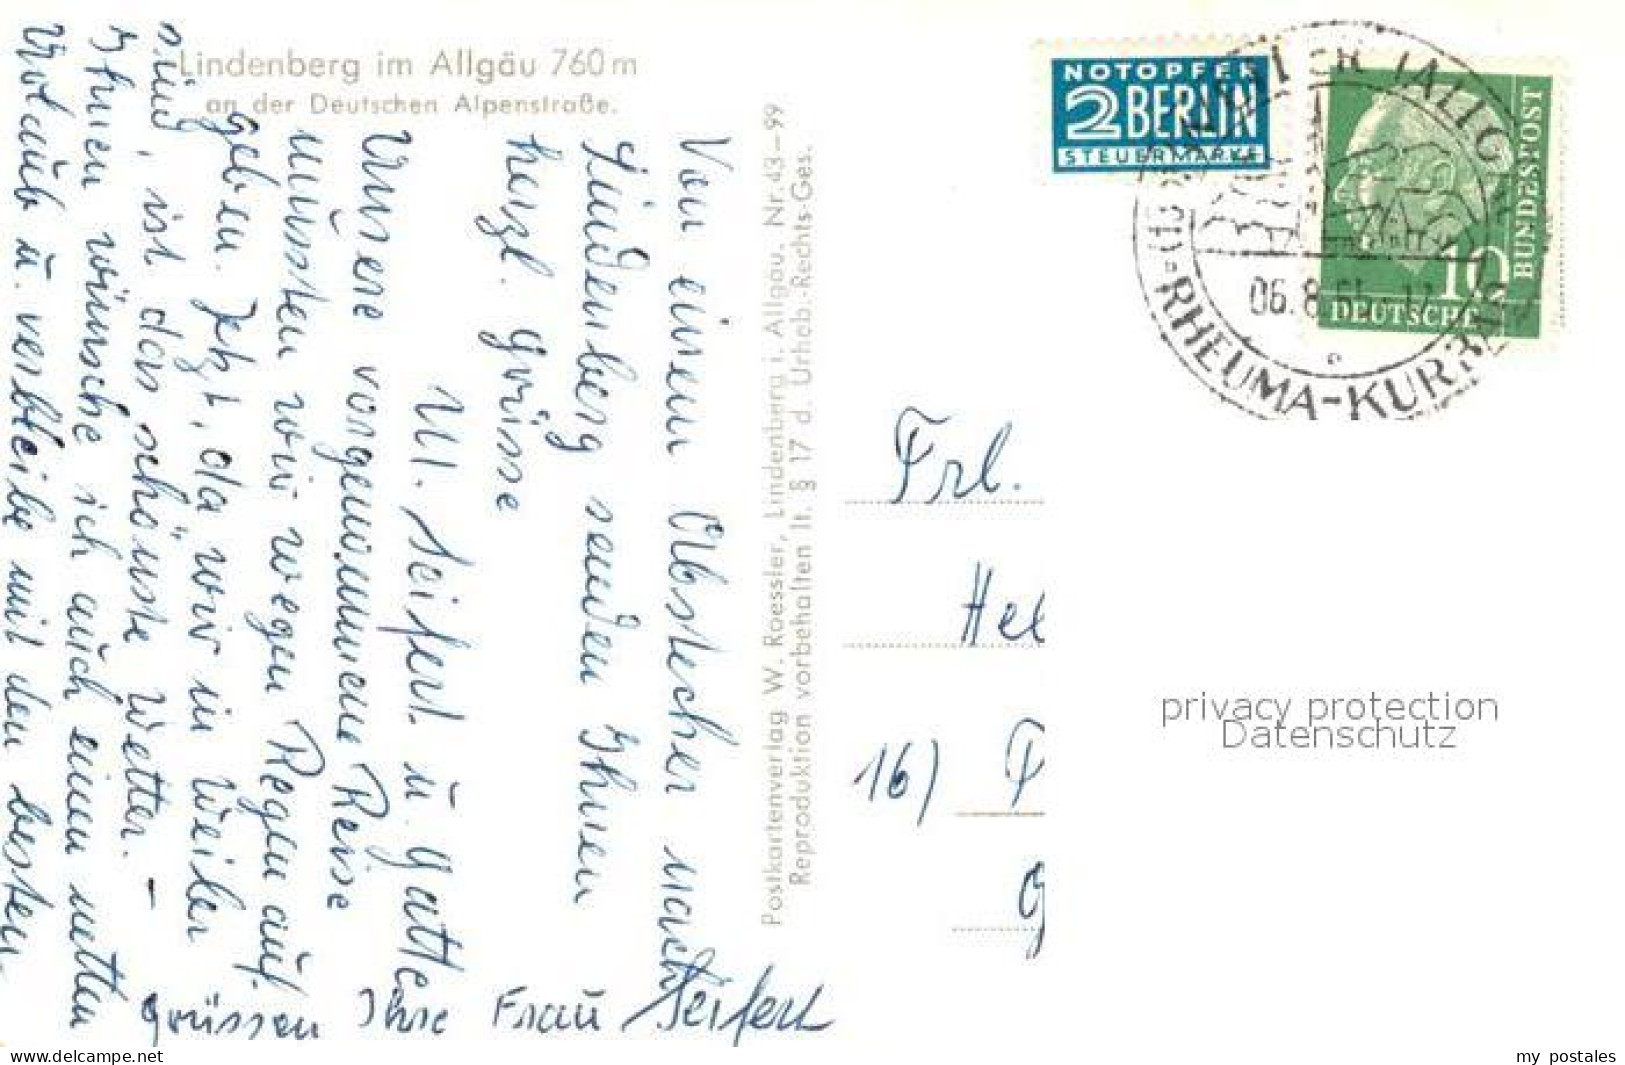 Lindenberg im Allgäu 760 m
an der Deutschen Alpenstraße.
Von einem Abstecher nach
Lindenberg senden Ihnen
herzl. Grüsse
M. Seifert u. Gatte
Unsere vorgenommene Reise
mussten wir wegen Regen auf-
geben. Jetzt, da wir in Weiler
sind, ist das schönste Wetter. –
Ihnen wünsche ich auch einen netten
Urlaub u. verbleibe mit den besten
Grüssen Ihre Frau Seifert
Postkartenverlag W. Roessler, Lindenberg i. Allgäu. Nr. 43–99
Reproduktion vorbehalten lt. § 17 d. Urheb.-Rechts-Ges.
NOTOPFER
2 BERLIN
STEUERMARKE
DEUTSCHE
BUNDESPOST
10
WEILER (ALLGÄU)
-RHEUMA-KURBAD
06.8.
Frl.
Hel
16)
privacy protection
Datenschutz
my postales
Las mejores ofertas, todo en un solo lugar.com